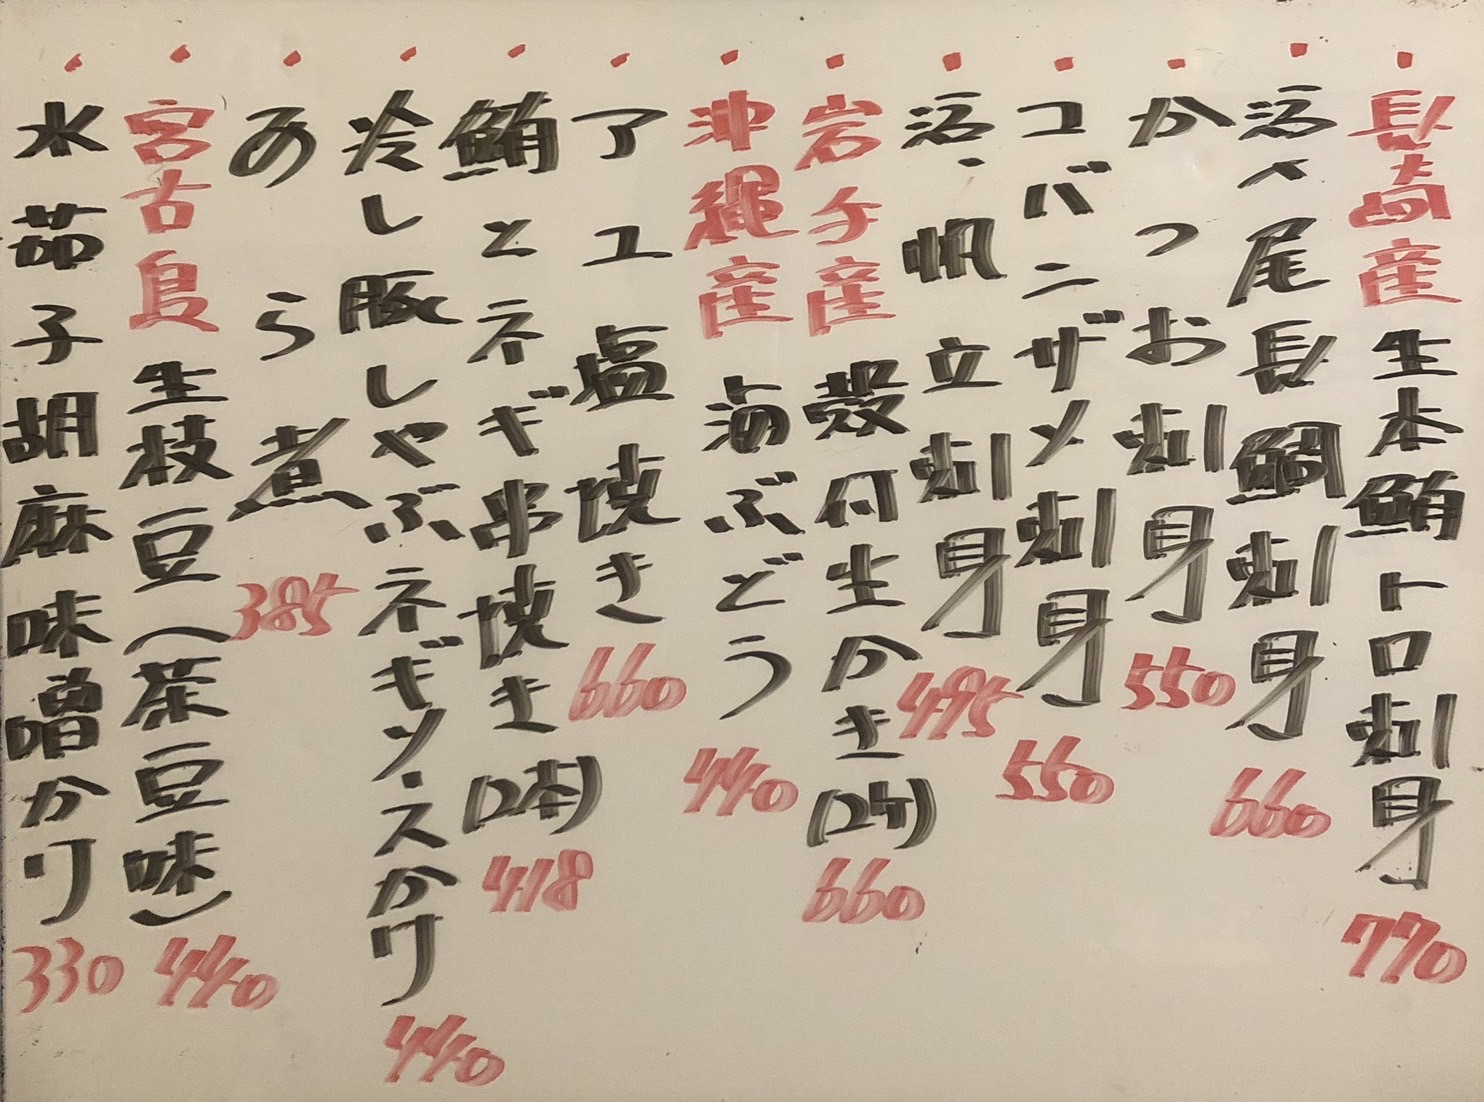 ・長崎産生本鮪トロ刺身 770
・活〆尾長鯛刺身 660
・かつお刺身 550
・コバンザメ刺身 550
・活、帆立刺身 495
・岩手産殻付生かき(2ケ) 660
・沖縄産海ぶどう 440
・アユ塩焼き 660
・鮪とネギ串焼き(2本) 418
・冷し豚しゃぶネギソースかけ 440
・あら煮 385
・宮古島生枝豆(茶豆味) 440
・水茄子胡麻味噌かけ 330